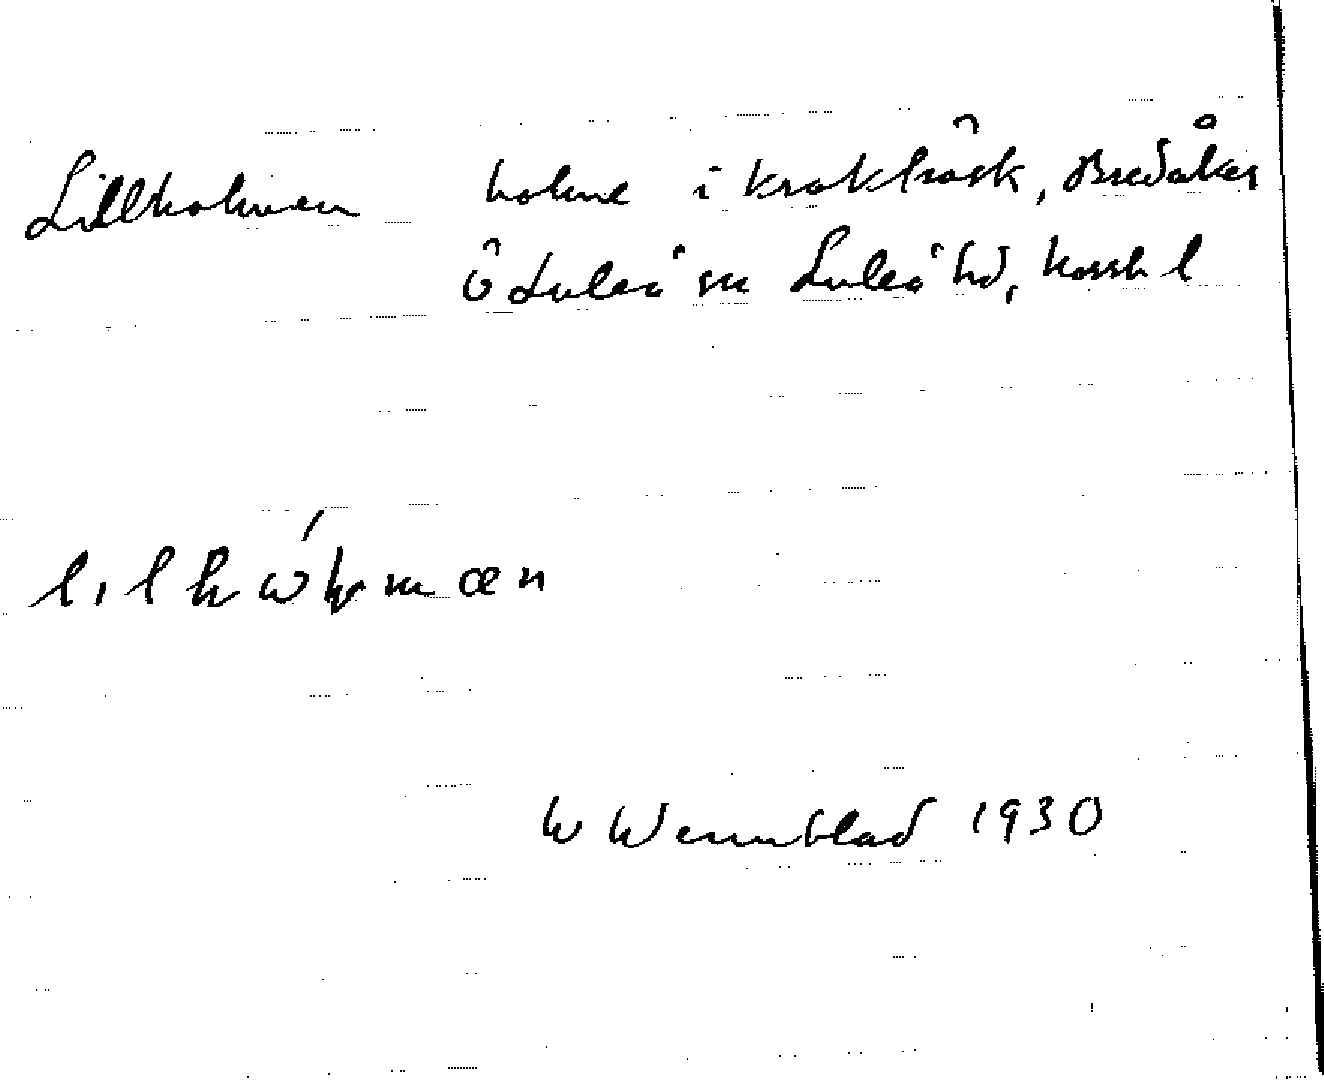 Lillholmen holme i Krokträsk, Bredåker
Ö Luleå sn Luleå hd, Norrb l
lilhólmæn
W Wennblad 1930